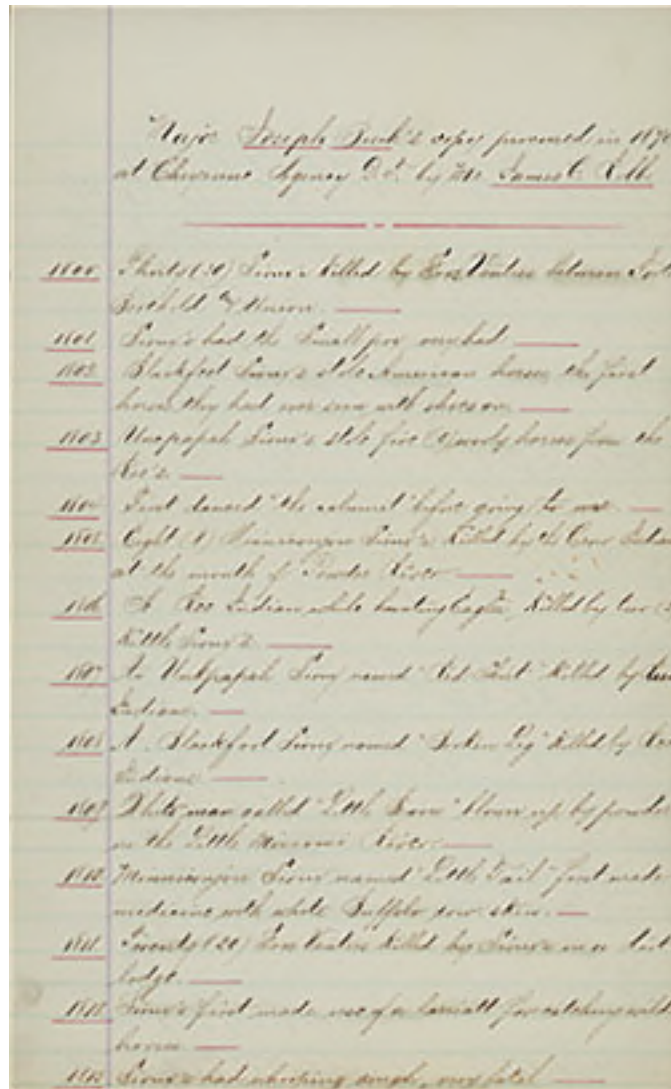 Major Joseph Bush's copy procured in 1870
at Cheyenne Agency D.T. by Mr. James C. Robb
1800 Thirty (30) Sioux killed by Gros Ventres between Fort
Berthold & Union.
1801 Sioux's had the Small pox very bad
1802 Blackfeet Sioux's stole American horses, the first
horses they had ever seen with shoes on.
1803 Uncpapah Sioux's stole five (5) wooly horses from the
Ree's.
1804 First danced "the calumet" before going to war.
1805 Eight (8) Minneconjou Sioux's Killed by the Crow Indians
at the mouth of Powder River
1806 A Ree Indian while hunting Eagles, Killed by Two
Kittle Sioux's.
1807 An Unkpapah Sioux named "Red Shirt" killed by Ree
Indians.
1808 A. Blackfoot Sioux named "Broken Leg" killed by Ree
Indians
1809 White man called "Little Beaver" blown up by powder
on the Little Missouri River.
1810 Minneconjou Sioux named "Little Tail" first made
medicine with white Buffalo cow skin.
1811 Twenty (20) Gros Ventres killed by Sioux's in a dirt
lodge.
1812 Sioux's first made use of a lariatt for catching wild
horses.
1813 Sioux's had whooping cough, very fatal